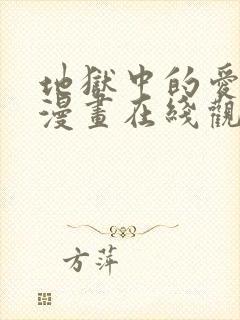 地獄中的愛
漫畫在綫觀
方萍